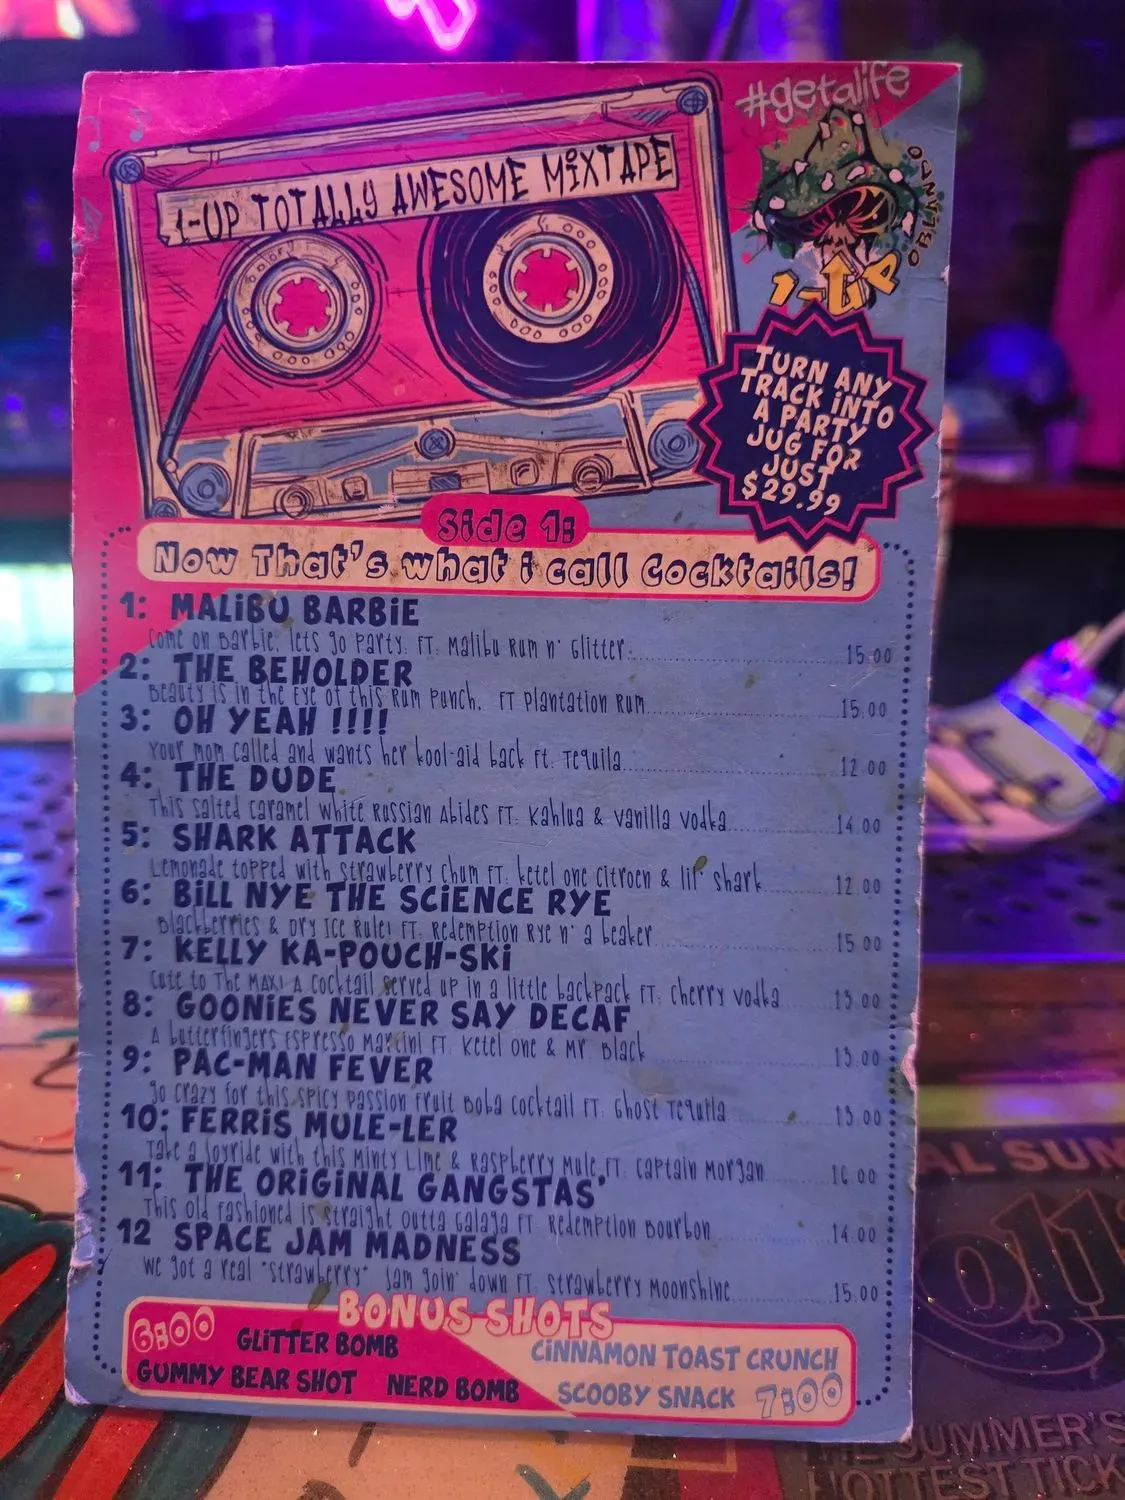 #getalife
1-UP TOTALLY AWESOME MIXTAPE
ORLANDO
1-UP
TURN ANY
TRACK iNTO
A PARTY
JUG FOR
JUST
$29.99
Side 1:
Now That's what i call Cocktails!
1: MALiBU BARBiE
Come on Barbie, lets go Party. FT. Malibu Rum n' Glitter 15.00
2: THE BEHOLDER
Beauty is in the Eye of this Rum Punch. FT Plantation Rum 15.00
3: OH YEAH !!!!
Your mom called and wants her kool-aid back Ft. Tequila 12.00
4: THE DUDE
This salted caramel white Russian Abides FT. Kahlua & vanilla vodka 14.00
5: SHARK ATTACK
Lemonade topped with strawberry chum FT. ketel one citroen & lil' shark 12.00
6: BiLL NYE THE SCiENCE RYE
Blackberries & Dry Ice Rule! FT. Redemption Rye n' a beaker 15.00
7: KELLY KA-POUCH-SKi
Cute to The MAX! A Cocktail served up in a little backpack FT. Cherry vodka 15.00
8: GOONiES NEVER SAY DECAF
A butterfingers Espresso Martini FT. Ketel One & Mr. Black 15.00
9: PAC-MAN FEVER
go crazy for this spicy passion fruit Boba cocktail FT. Ghost Tequila 15.00
10: FERRiS MULE-LER
Take a Joyride with this Minty Lime & Raspberry Mule FT. Captain Morgan 16.00
11: THE ORiGiNAL GANGSTAS'
This Old Fashioned is straight outta Galaga FT. Redemption Bourbon 14.00
12 SPACE JAM MADNESS
we got a real "strawberry" Jam goin' down FT. Strawberry Moonshine 15.00
BONUS SHOTS
6:00 GLiTTER BOMB
GUMMY BEAR SHOT NERD BOMB
CiNNAMON TOAST CRUNCH
SCOOBY SNACK 7:00
AL SUM
SUMMER'S
HOTTEST TICK